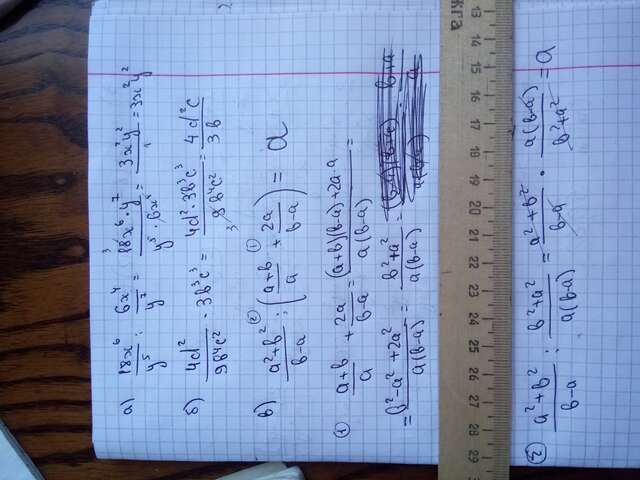 а) 18x⁶/y⁵ : 6x⁴/y⁷ = 18x⁶·y⁷/y⁵·6x⁴ = 3x²y²/1 = 3x²y²
б) 4d²/9b⁴c² · 3b³c³ = 4d²·3b³c³/9b⁴c² = 4d²c/3b
в) a²+b²/b-a : (a+b/a + 2a/b-a) = a
① a+b/a + 2a/b-a = (a+b)(b-a)+2a·a/a(b-a) =
= b²-a²+2a²/a(b-a) = b²+a²/a(b-a)
② a²+b²/b-a : b²+a²/a(b-a) = a²+b²/b-a · a(b-a)/b²+a² = a
жга
13 14 15 16 17 18 19 20 21 22 23 24 25 26 27 28 29